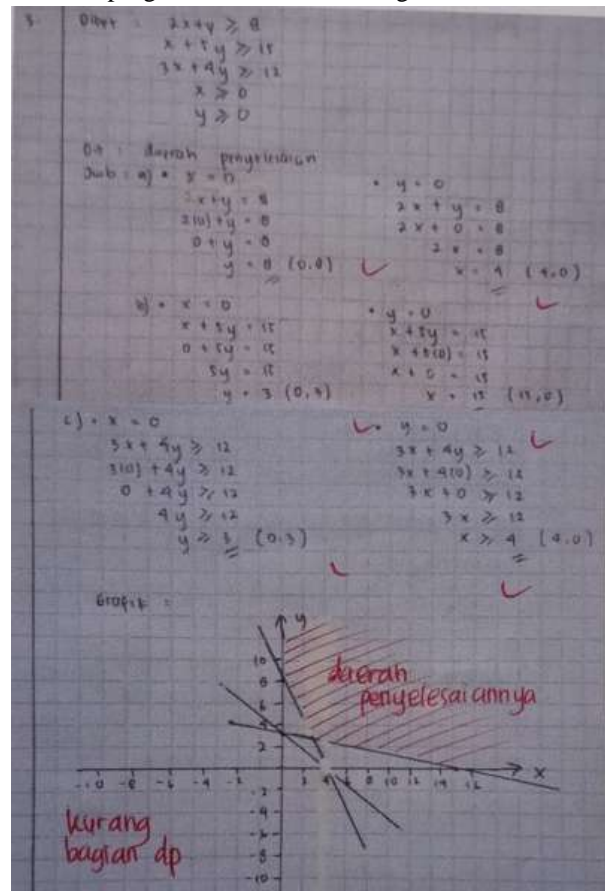 3. Diket : 2x+y ≥ 8
x + 5y ≥ 15
3x + 4y ≥ 12
x ≥ 0
y ≥ 0
Dit : daerah penyelesaian
Jwb : a) • x = 0
2x+y = 8
2(0)+y = 8
0+y = 8
y = 8 (0,8)
• y = 0
2x + y = 8
2x + 0 = 8
2x = 8
x = 4 (4,0)
b) • x = 0
x + 5y = 15
0 + 5y = 15
5y = 15
y = 3 (0,3)
• y = 0
x + 5y = 15
x + 5(0) = 15
x + 0 = 15
x = 15 (15,0)
c) • x = 0
3x + 4y ≥ 12
3(0) + 4y ≥ 12
0 + 4y ≥ 12
4y ≥ 12
y ≥ 3 (0,3)
• y = 0
3x + 4y ≥ 12
3x + 4(0) ≥ 12
3x + 0 ≥ 12
3x ≥ 12
x ≥ 4 (4,0)
Grafik =
y
daerah
penyelesaiannya
x
kurang
bagian dp